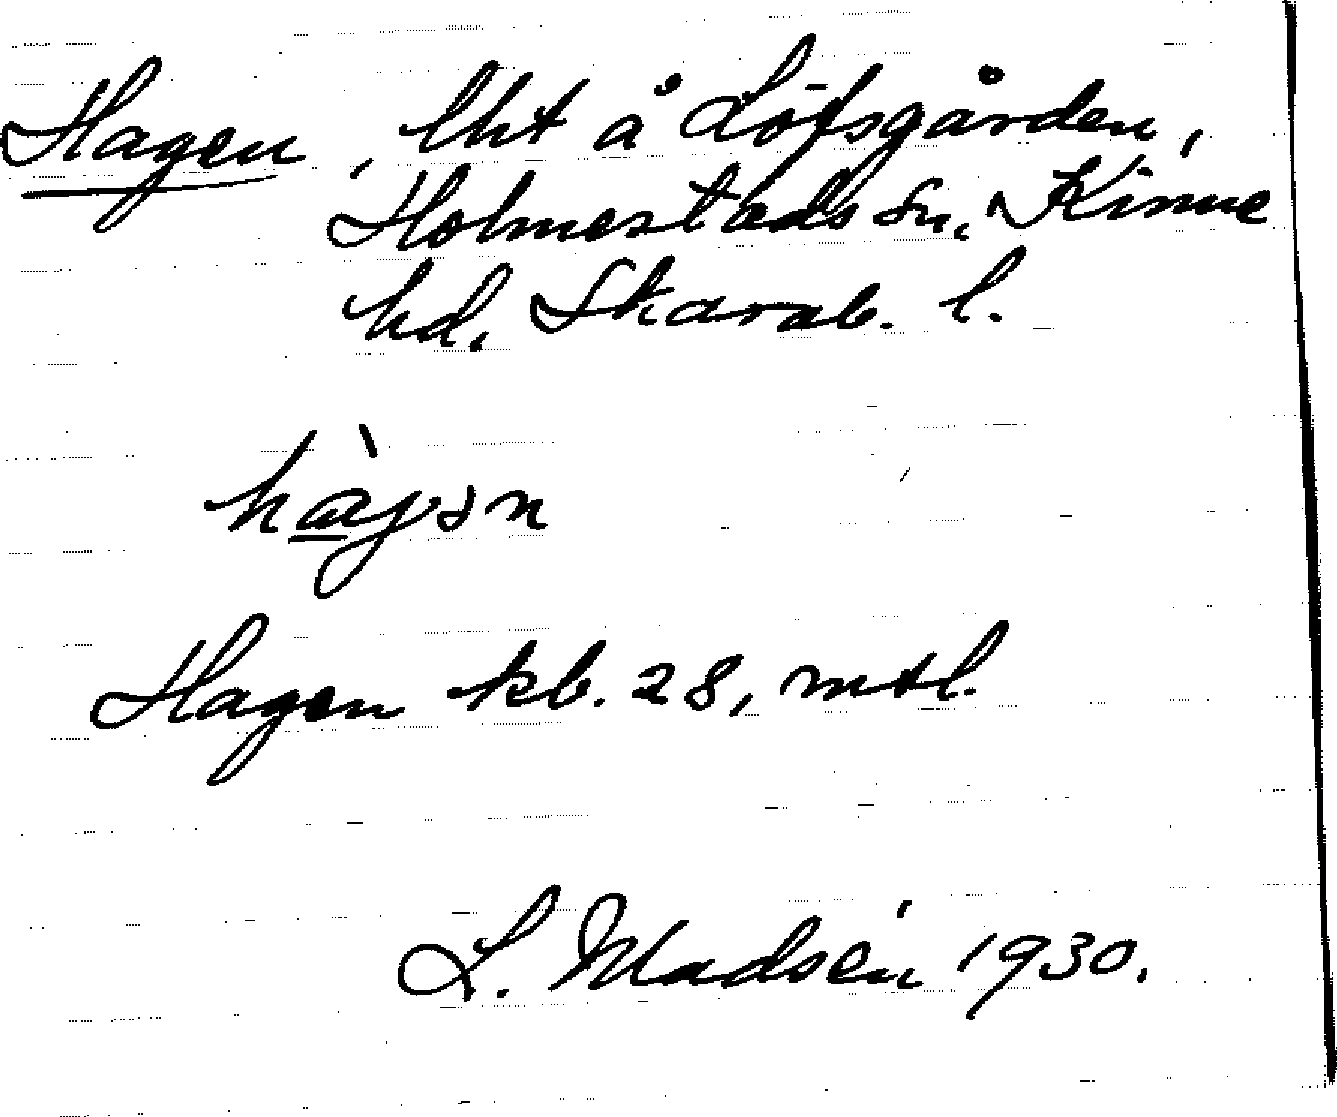 Hagen, lht å Löfsgården,
Holmestads sn, Kinne
hd, Skarab. l.
hàgən
Hagen kb. 28, mtl.
L. Madsén 1930.